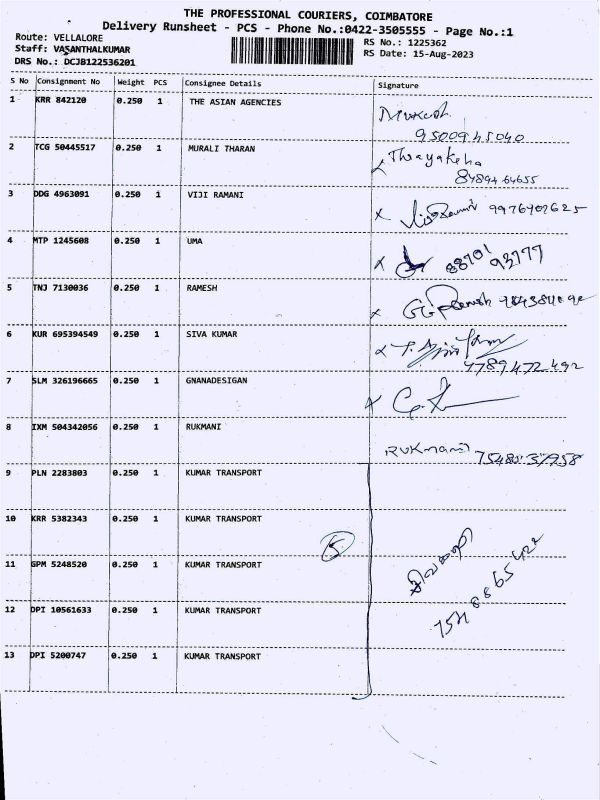 THE PROFESSIONAL COURIERS, COIMBATORE
Delivery Runsheet - PCS - Phone No.:0422-3505555 - Page No.:1
Route: VELLALORE
RS No.: 1225362
Staff: VASANTHALKUMAR
RS Date: 15-Aug-2023
DRS No.: DCJB122536201
S No Consignment No Weight PCS Consignee Details Signature
1 KRR 842120 0.250 1 THE ASIAN AGENCIES
95009 45040
2 TCG 50445517 0.250 1 MURALI THARAN
84894 64655
3 DDG 4963091 0.250 1 VIJI RAMANI 9976402625
4 MTP 1245608 0.250 1 UMA 88701 93777
5 TNJ 7130036 0.250 1 RAMESH
6 KUR 695394549 0.250 1 SIVA KUMAR
4789472492
7 SLM 326196665 0.250 1 GNANADESIGAN
8 IXM 504342056 0.250 1 RUKMANI Rukmani
9 PLN 2283803 0.250 1 KUMAR TRANSPORT
10 KRR 5382343 0.250 1 KUMAR TRANSPORT
5
11 GPM 5248520 0.250 1 KUMAR TRANSPORT
12 DPI 10561633 0.250 1 KUMAR TRANSPORT
13 DPI 5200747 0.250 1 KUMAR TRANSPORT